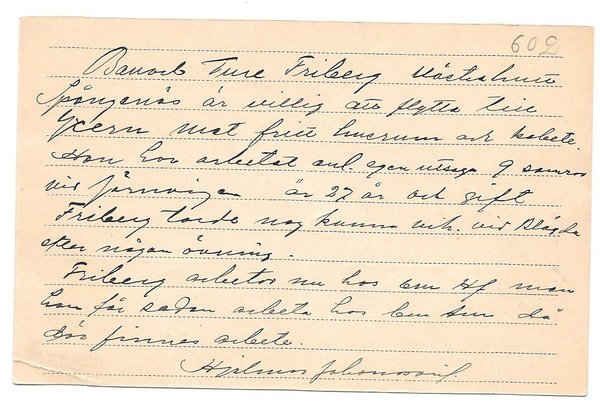 602
Banarb Ture Friberg
Spångenäs är villig att flytta till
Yxern mot fritt husrum och
Han har arbetat enl. egen utsago 9 somrar
vid järnvägen är 27 år och gift
Friberg torde nog kunna vik. vid
efter någon övning.
Friberg arbetar nu hos bm Hf men
han får sedan arbeta hos bm då
där finnes arbete.
Hjalmar Johansson